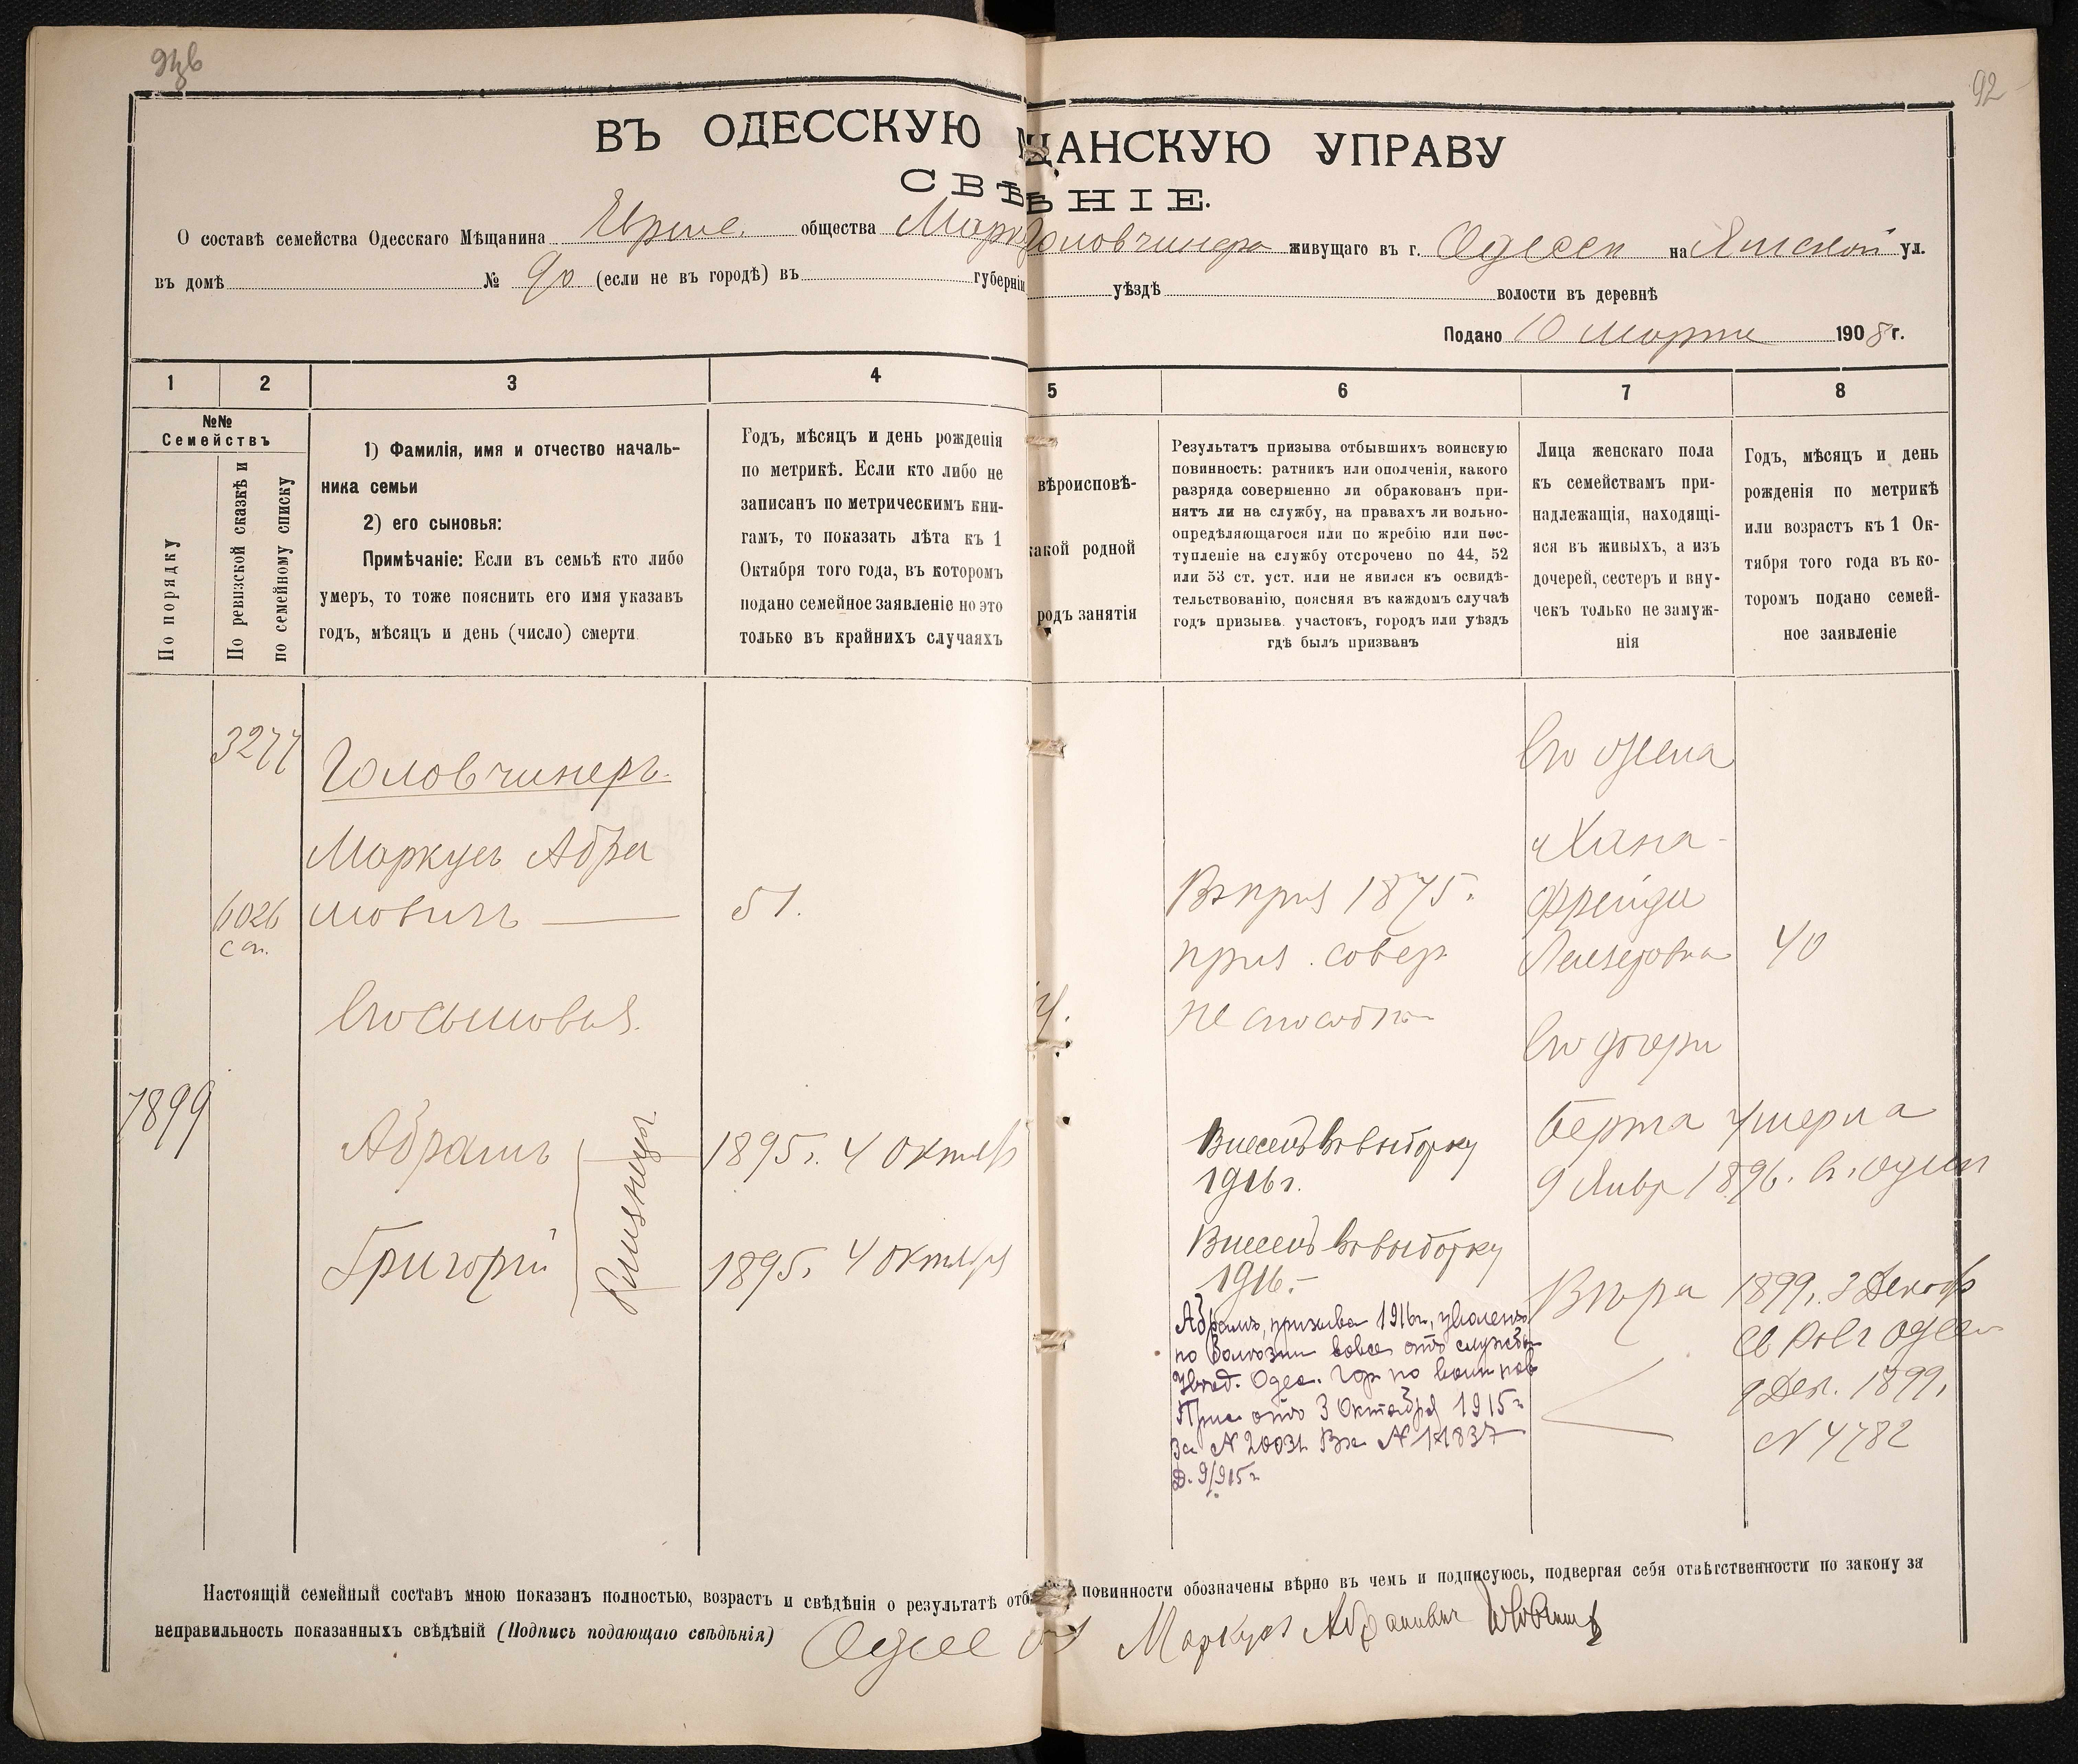 92
ВЪ ОДЕССКУЮ ЩАНСКУЮ УПРАВУ
СВѢ ѢНІЕ.
О составѣ семейства Одесскаго Мѣщанина Еврейс. общества Марк Головчинера живущаго въ г. Одессѣ на Ямской ул.
въ домѣ № 90 (если не въ городѣ) въ губерніи уѣздѣ волости въ деревнѣ
Подано 10 Марта 1908 г.
1 2 3 4 5 6 7 8
№№
Семействъ
По порядку
По ревизской сказкѣ и
по семейному списку
1) Фамилія, имя и отчество началь-
ника семьи
2) его сыновья:
Примѣчаніе: Если въ семьѣ кто либо
умеръ, то тоже пояснить его имя указавъ
годъ, мѣсяцъ и день (число) смерти
Годъ, мѣсяцъ и день рожденія
по метрикѣ. Если кто либо не
записанъ по метрическимъ кни-
гамъ, то показать лѣта къ 1
Октября того года, въ которомъ
подано семейное заявленіе но это
только въ крайнихъ случаяхъ
вѣроисповѣ-
какой родной
родъ занятія
Результатъ призыва отбывшихъ воинскую
повинность: ратникъ или ополченія, какого
разряда совершенно ли обракованъ при-
нятъ ли на службу, на правахъ ли вольно-
опредѣляющагося или по жребію или пос-
тупленіе на службу отсрочено по 44, 52
или 53 ст. уст. или не явился къ освидѣ-
тельствованію, поясняя въ каждомъ случаѣ
годъ призыва. участокъ, городъ или уѣздъ
гдѣ былъ призванъ
Лица женскаго пола
къ семействамъ при-
надлежащія, находящі-
яся въ живыхъ, а изъ
дочерей, сестеръ и вну-
чекъ только не замуж-
нія
Годъ, мѣсяцъ и день
рожденія по метрикѣ
или возрастъ къ 1 Ок-
тября того года въ ко-
торомъ подано семей-
ное заявленіе
3277
Головчинеръ
Маркусъ Абра
6026
сп.
мовичъ — 51.
Его сыновья.
1899
Абрамъ 1895г. 4 Октяб
Близнецы
Григорій 1895г. 4 Октября
Въ приз 1875г.
приз. совер.
не способн
Внесенъ въ выборку
1916г.
Внесенъ въ выборку
1916г.
Абрамъ, призыва 1916г., уволенъ
по болѣзни вовсе отъ службы
Увѣд. Одес. Гор по воин пов
Прис отъ 3 Октября 1915г
за № 20031 Вх № 11837
Д. 9/915г
Его жена
Хана-
Фрейда
Лейзеровна 40
Его дочери
Берта умерла
9 Январ 1896. въ г. Одессѣ
Вѣра 1899г. 2 Декабр
Св Рав г Одессы
9 Дек. 1899г.
№ 4782
Настоящій семейный составъ мною показанъ полностью, возрастъ и свѣдѣнія о результатѣ отб повинности обозначены вѣрно въ чемъ и подписуюсь, подвергая себя отвѣтственности по закону за
неправильность показанныхъ свѣдѣній (Подпись подающаго свѣдѣнія) Маркусъ Абрамовичъ